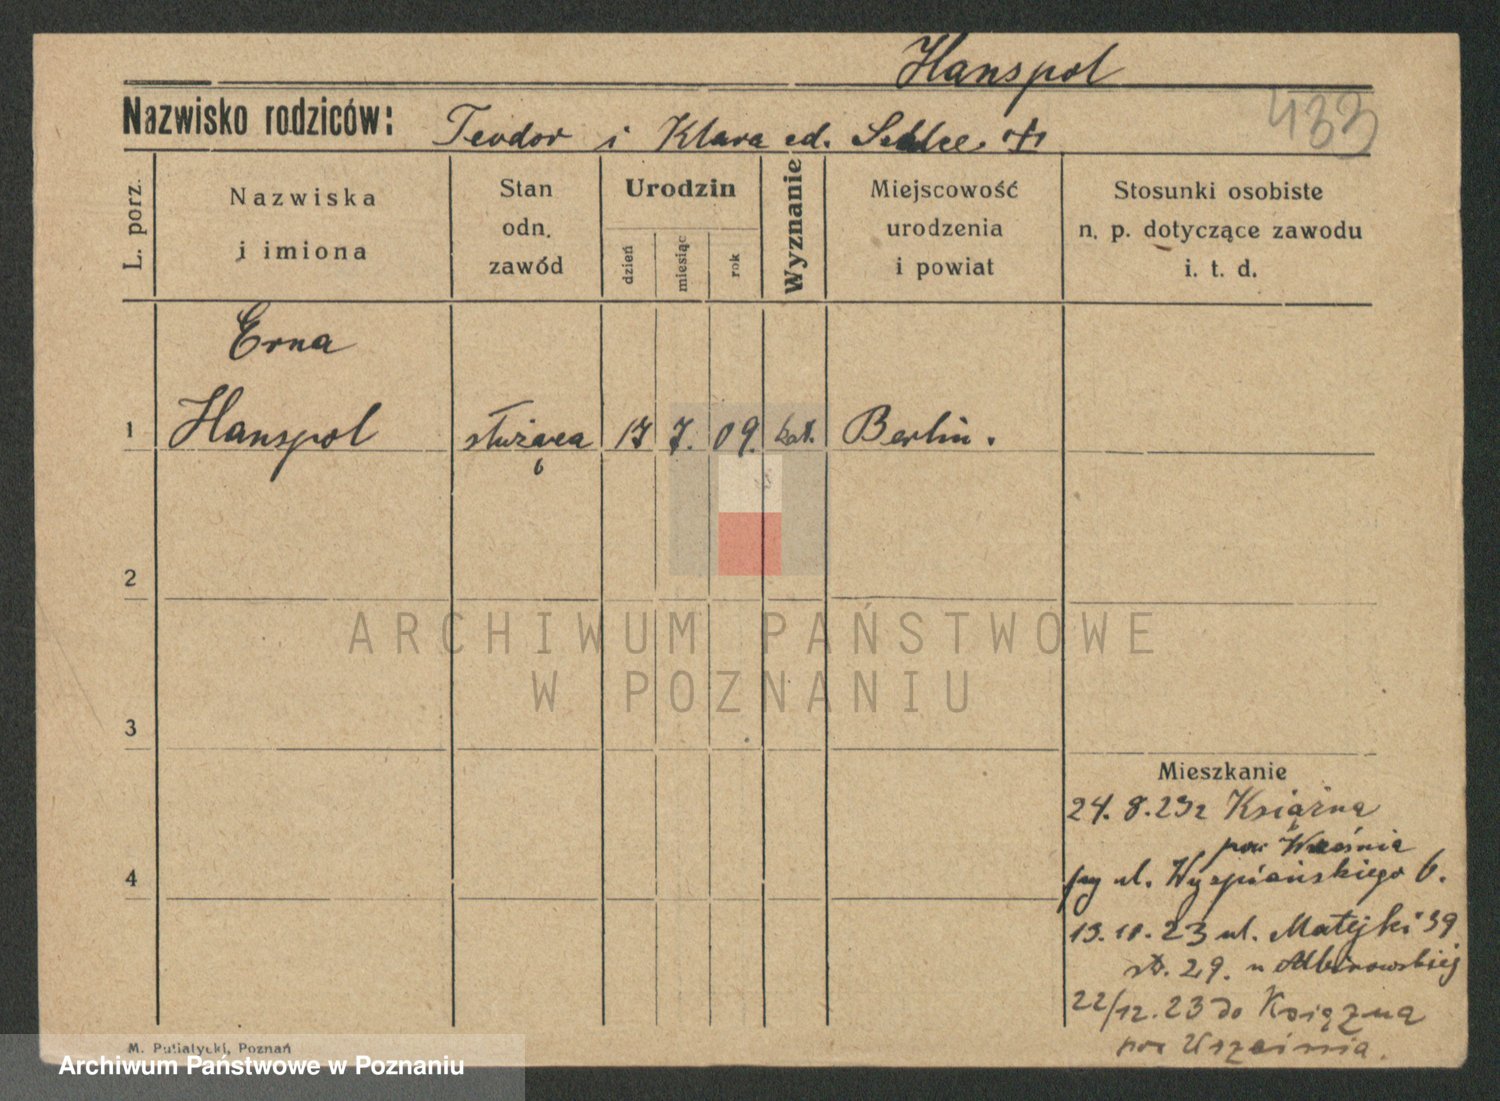 Hanspol
433
Nazwisko rodziców: Teodor i Klara
L. porz.
Nazwiska i imiona
Stan odn. zawód
Urodzin
dzień
miesiąc
rok
Wyznanie
Miejscowość urodzenia i powiat
Stosunki osobiste n. p. dotyczące zawodu i. t. d.
Erna
1 Hanspol służąca 17 7. 09. kat. Berlin.
2
ARCHIWUM PAŃSTWOWE
W POZNANIU
3
Mieszkanie
24. 8. 23 z Książna
pow Września
4
ul. Wyspiańskiego 6.
13. 10. 23 ul. Matejki 39
29. u
22/12. 23 do Książna
pow Września.
M. Putiatycki, Poznań
Archiwum Państwowe w Poznaniu